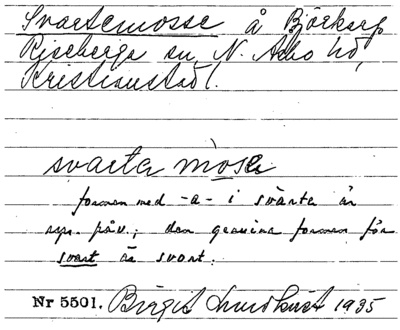 Svartemosse å Björkarp
Riseberga sn, N. Åsbo hd,
Kristianstad l.
svarta mosa
formen med -a- i svarta är
rspr. påv.; den genuina formen för
svart är svort.
Nr 5501. Birgit Lundkvist 1935